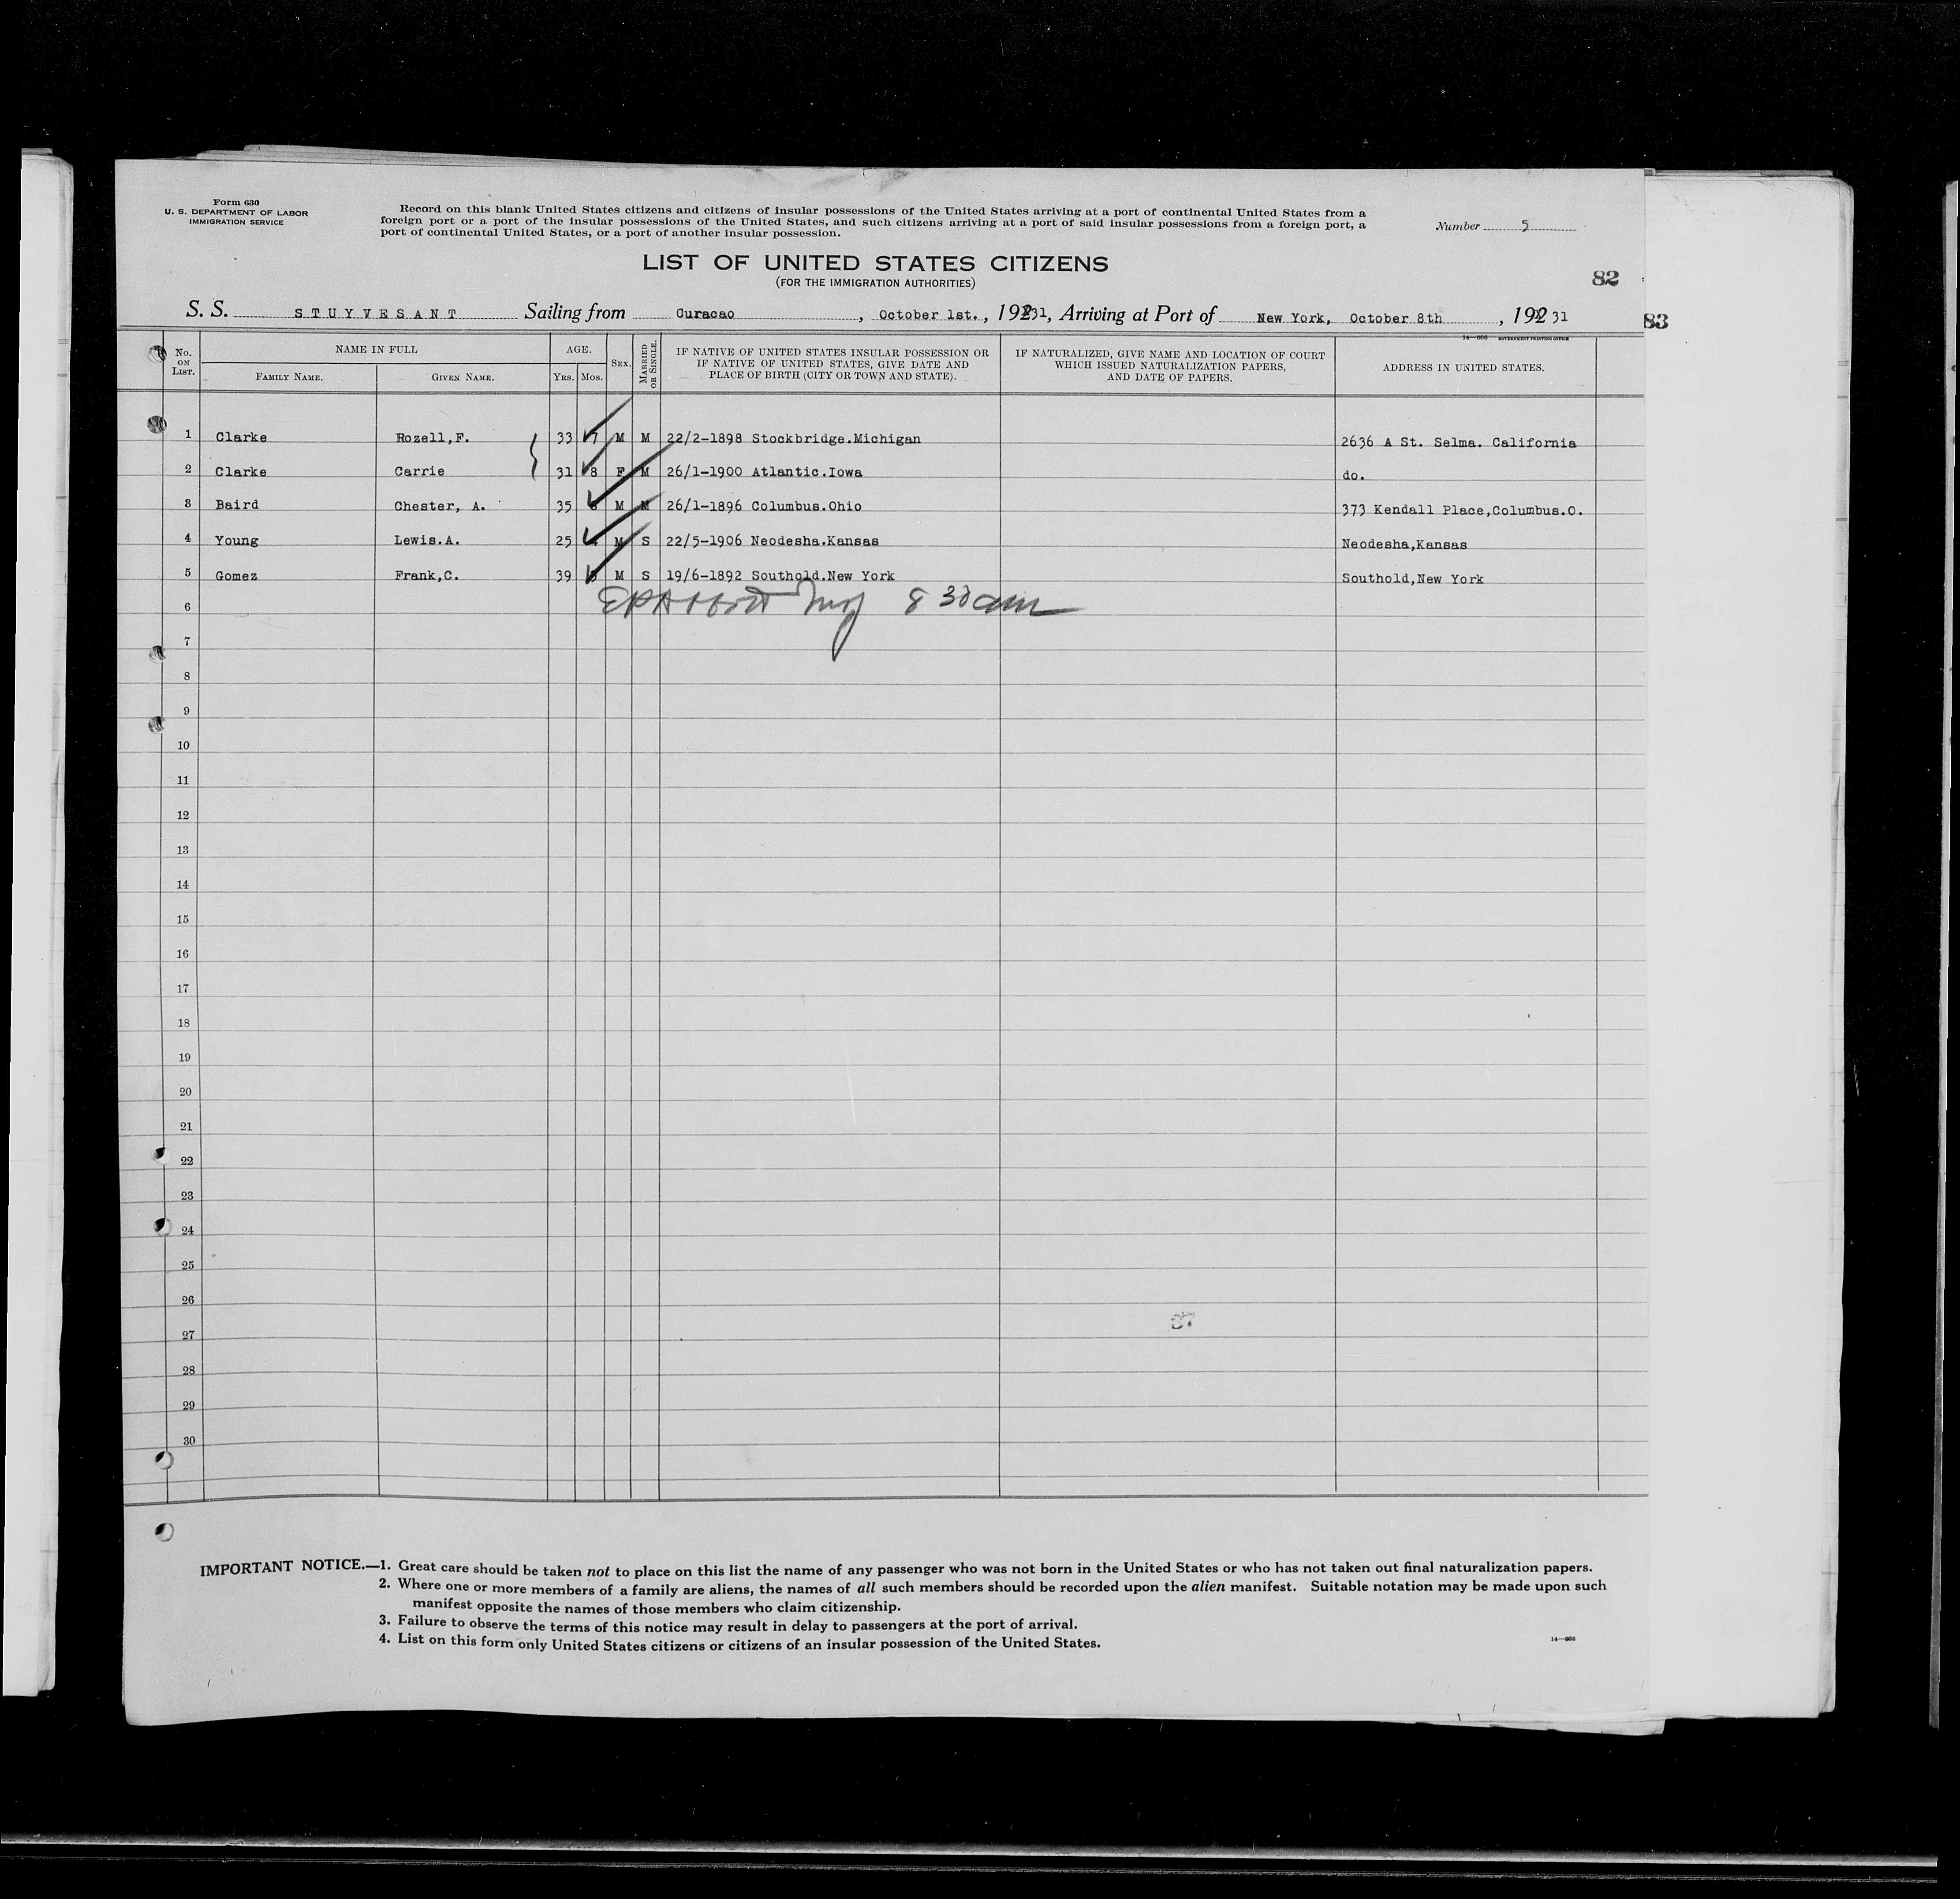 Form 630
U. S. DEPARTMENT OF LABOR
IMMIGRATION SERVICE
Record on this blank United States citizens and citizens of insular possessions of the United States arriving at a port of continental United States from a
foreign port or a port of the insular possessions of the United States, and such citizens arriving at a port of said insular possessions from a foreign port, a
port of continental United States, or a port of another insular possession.
Number 5
LIST OF UNITED STATES CITIZENS
(FOR THE IMMIGRATION AUTHORITIES)
82
83
S. S. STUYVESANT Sailing from Curacao, October 1st., 19231, Arriving at Port of New York, October 8th, 192 31
14—608 GOVERNMENT PRINTING OFFICE
No. ON LIST. NAME IN FULL FAMILY NAME. GIVEN NAME. AGE. YRS. MOS. SEX. MARRIED OR SINGLE. IF NATIVE OF UNITED STATES INSULAR POSSESSION OR IF NATIVE OF UNITED STATES, GIVE DATE AND PLACE OF BIRTH (CITY OR TOWN AND STATE). IF NATURALIZED, GIVE NAME AND LOCATION OF COURT WHICH ISSUED NATURALIZATION PAPERS, AND DATE OF PAPERS. ADDRESS IN UNITED STATES.
1 Clarke Rozell,F. 33 7 M M 22/2-1898 Stockbridge.Michigan 2636 A St. Selma. California
2 Clarke Carrie 31 8 F M 26/1-1900 Atlantic.Iowa do.
3 Baird Chester, A. 35 M M 26/1-1896 Columbus.Ohio 373 Kendall Place,Columbus.O.
4 Young Lewis.A. 25 M S 22/5-1906 Neodesha.Kansas Neodesha,Kansas
5 Gomez Frank,C. 39 M S 19/6-1892 Southold.New York Southold,New York
6 8 30 am
7
8
9
10
11
12
13
14
15
16
17
18
19
20
21
22
23
24
25
26
27
28
29
30
IMPORTANT NOTICE.—1. Great care should be taken not to place on this list the name of any passenger who was not born in the United States or who has not taken out final naturalization papers.
2. Where one or more members of a family are aliens, the names of all such members should be recorded upon the alien manifest. Suitable notation may be made upon such
manifest opposite the names of those members who claim citizenship.
3. Failure to observe the terms of this notice may result in delay to passengers at the port of arrival.
4. List on this form only United States citizens or citizens of an insular possession of the United States.
14—608